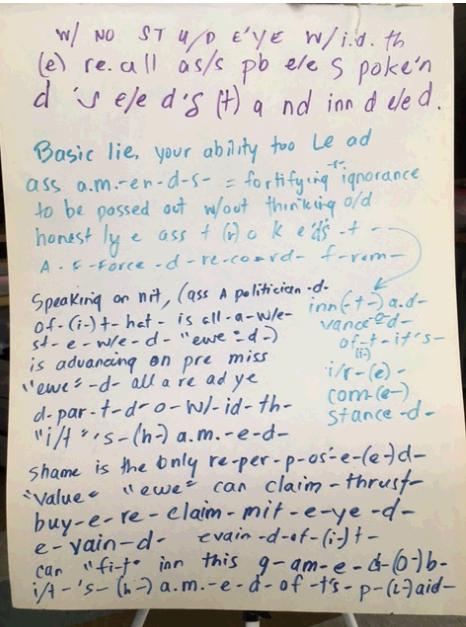 W/ NO ST U/D E'YE W/i.d. th
(e) re.call as/s pb ele s poke'n
d 's ele d's (t) a nd inn d eled.
Basic lie, your ability too Le ad
ass a.m.-en-d-s- = fortifying ignorance
to be passed out w/out thinking o/d
honest ly e ass t (r) o k e ds -t -
A. s -force -d -re-coard- f-rom-
Speaking on nit, (ass A politician -d-
of-(i-) t-hat- is all-a-w/e-
st-e-w/e-d- "ewe =d-)
is advancing on pre miss
"ewe = -d- all a re ad ye
d-par-t-d-o-w/-id-th-
"i/t ='s-(h-) a.m.-e-d-
inn(-t-) a.d-
vance=d-
of-t-it's-
(i-)
i/r-(e)-
com-(e-)
stance-d-
Shame is the only re-per-p-os-e-(e-)d-
"value = "ewe = can claim-thrust-
buy-e-re-claim-mit-e-ye-d-
e-vain-d- evain-d-of-(i-)t-
can "fi-t= inn this g-am-e-d-(o-)b-
i/t-'s-(h-) a.m.-e-d-of-t's-p-(l-)aid-